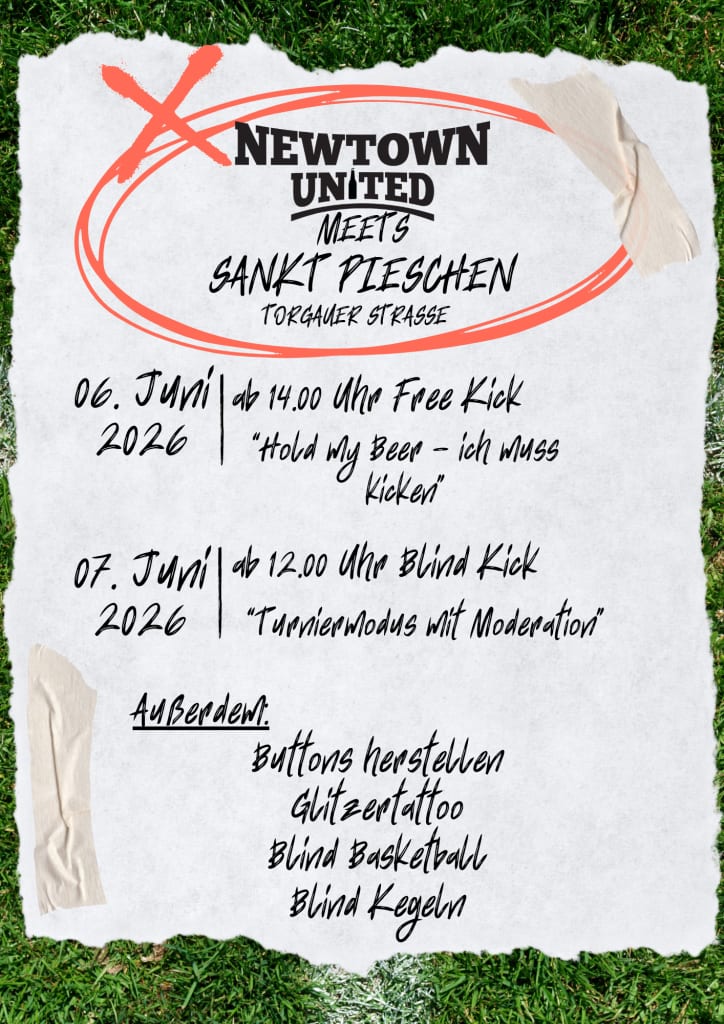 NEWTOWN
UNITED
MEETS
SANKT PIESCHEN
TORGAUER STRASSE
06. Juni
2026
ab 14.00 Uhr Free Kick
"Hold my Beer – ich muss
kicken"
07. Juni
2026
ab 12.00 Uhr Blind Kick
"Turniermodus mit Moderation"
Außerdem:
Buttons herstellen
Glitzertattoo
Blind Basketball
Blind Kegeln